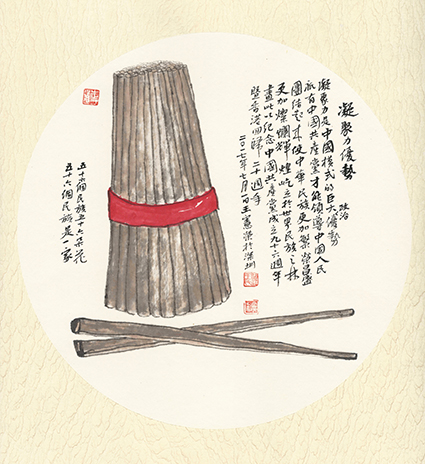 凝聚力優勢
凝聚力是中國模式的巨大政治優勢
祇有中國共產黨才能領導中國人民
團结起來使中華民族更加繁榮昌盛
更加燦爛輝煌屹立於世界民族之林
畫此以纪念中國共產黨成立九十六週年
暨香港回歸二十週年
二〇一七年七月一日王憲榮於深圳
五十六個民族五十六朵花
五十六個民族是一家